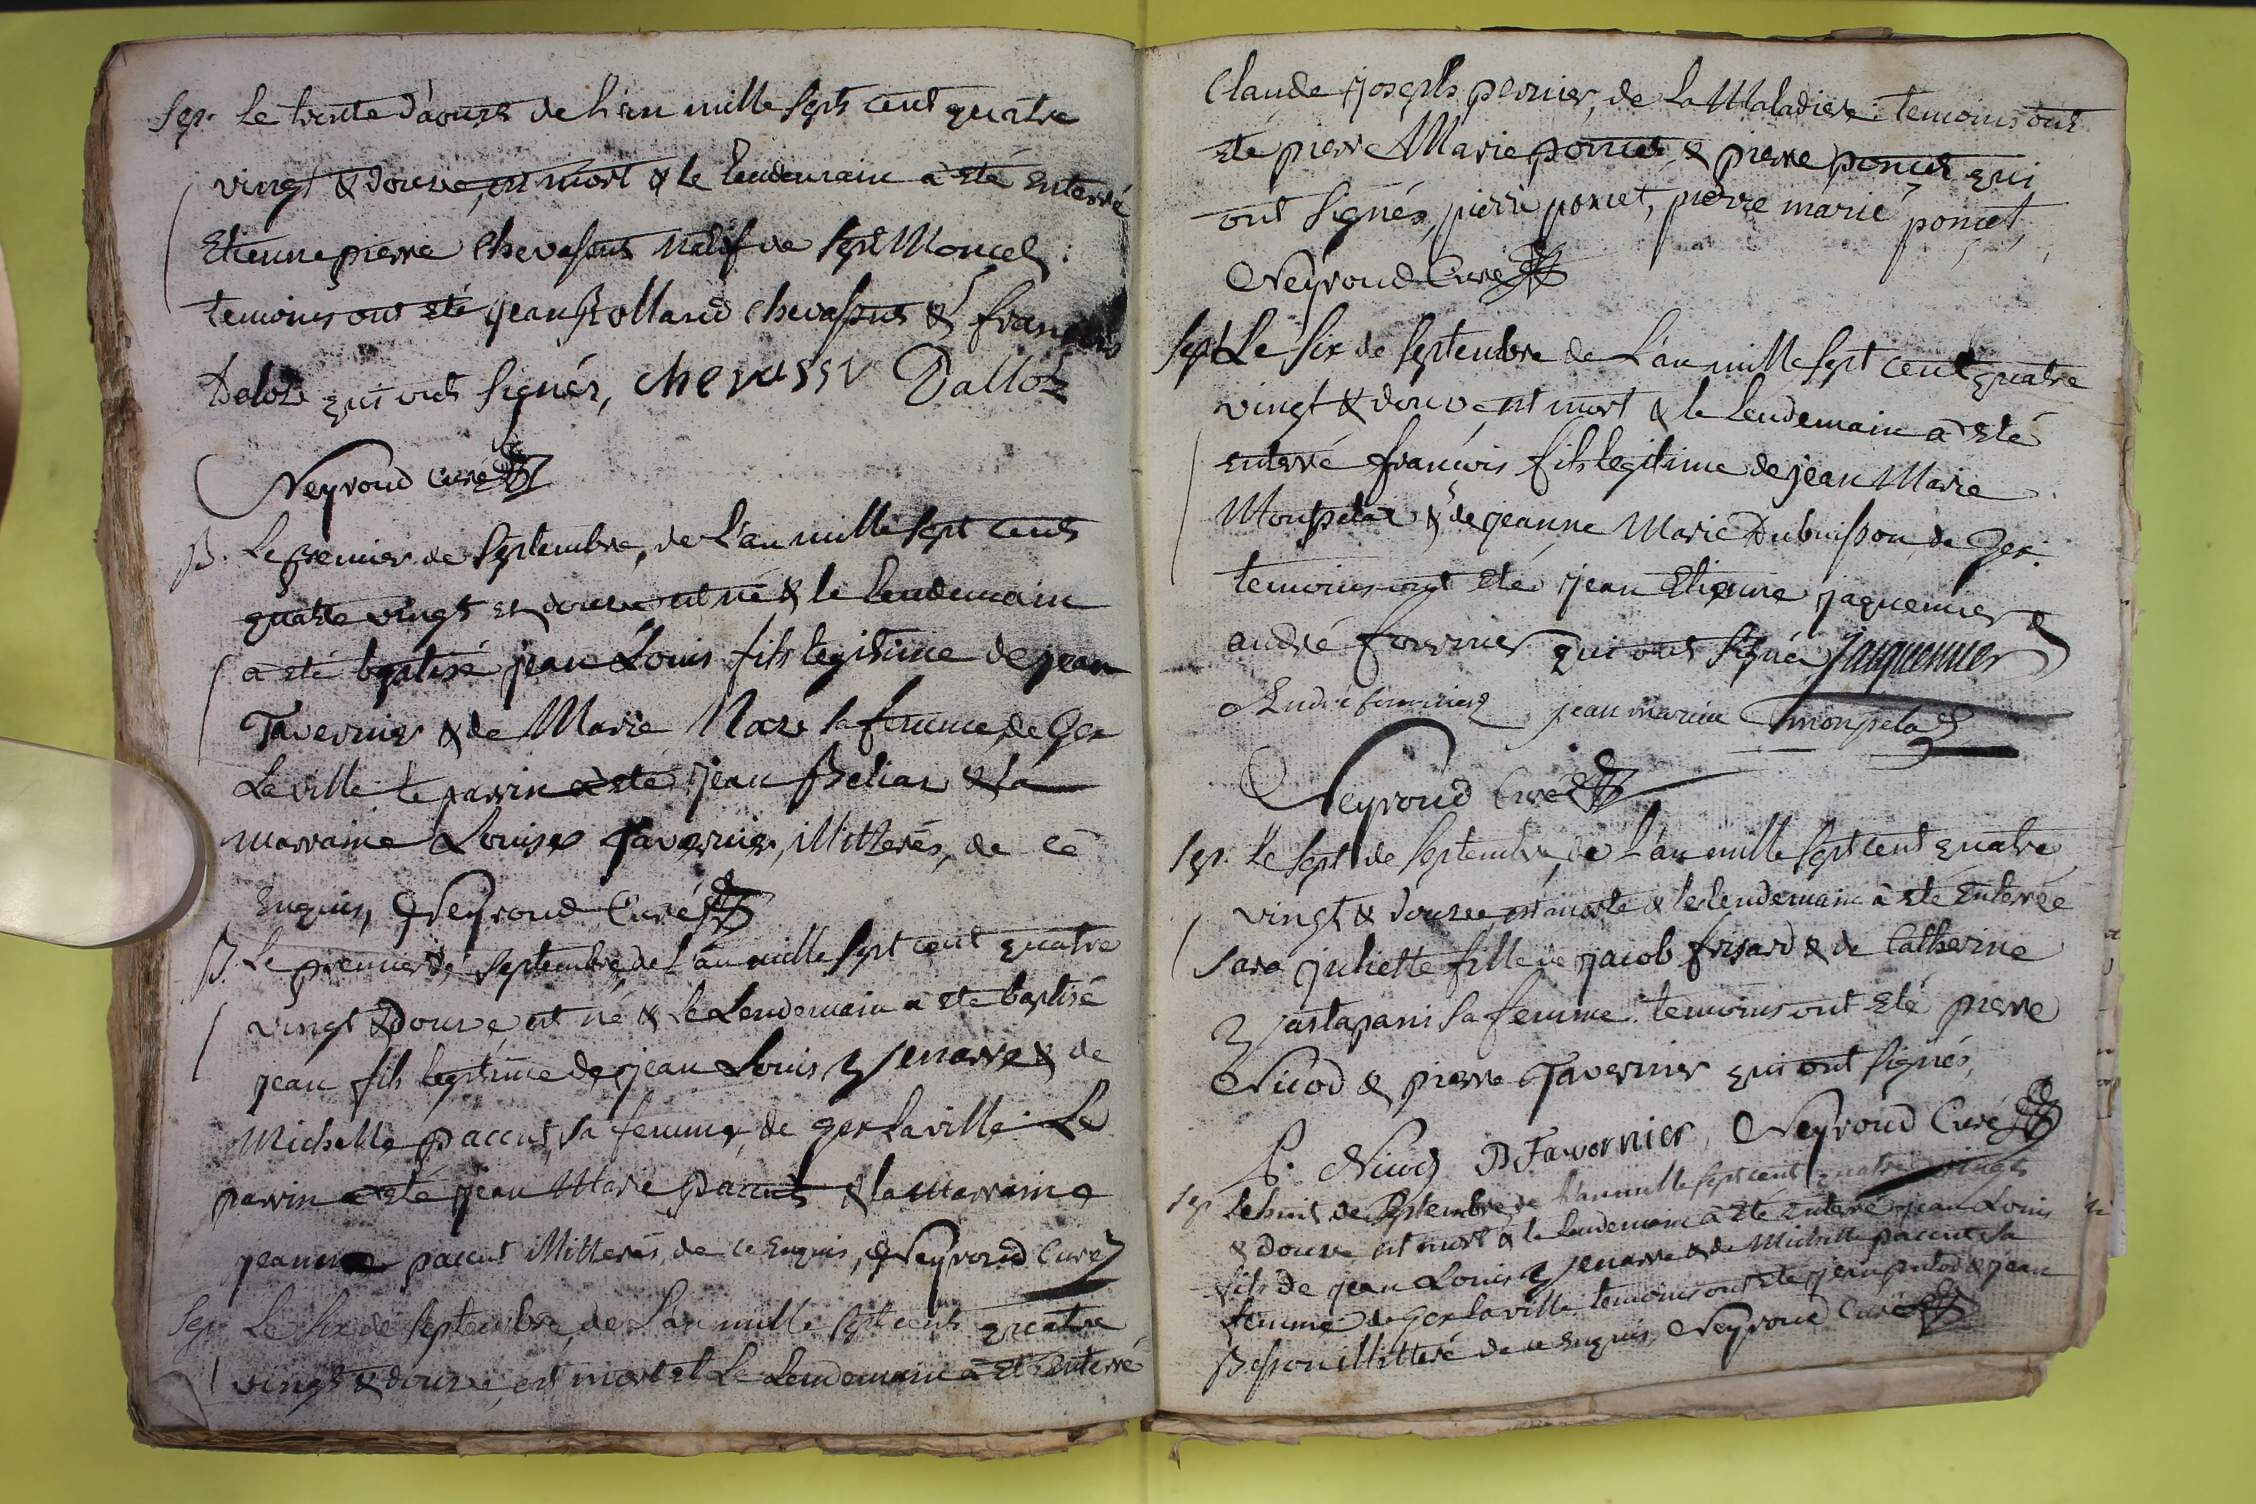 Sep. Le trente d'aoust de l'an mille sept cent quatre
vingt & douze, est mort & le lendemain à été enterré
Etienne pierre Chevassus natif de sept Moncel
temoins ont été jean Rolland chevassus & françois
Daloz qui ont signés, chevassu Dalloz
Neyroud Curé
B. Le premier de septembre, de l'an mille sept cent
quatre vingt et douze est né & le lendemain
a été baptisé jean Louis fils legitime de jean
Tavernier & de Marie Naz sa femme, de Gex
La ville le parrin à été jean Beliar & la
marraine Louise Tavernier, illitterés, de ce
enquis, Neyroud Curé
B. Le premier de septembre, de l'an mille sept cent quatre
vingt & douze, est né & le Lendemain a été baptisé
jean fils legitime de jean Louis & de
Michelle paccut, sa femme, de gex la ville Le
parrin a été jean Marie Paccut & la Marraine
jeanne paccut illitterés, de ce enquis, Neyroud Curé
Sep. Le six de septembre, de L'an mille sept cent quatre
vingt & douze, est mort et Le Lendemain à été enterré
Claude joseph pernier, de La Maladiere temoins ont
été pierre Marie poncet & pierre poncet qui
ont signés, pierre poncet, pierre marie poncet,
Neyroud Curé
Sept Le six de septembre de L'an mille sept cent quatre
vingt & douze, est mort & le lendemain a été
enterré françois fils legitime de jean Marie
Monpelaz & de jeanne Marie Dubuisson, de Gex.
temoins ont été jean Etienne jaquemier &
andré fournier qui ont signé, jacquemier
André fournier jean marie monpelaz
Neyroud Curé
Sep. Le sept de septembre, de L'an mille sept cent quatre
vingt & douze, est morte & le lendemain à été enterrée
Sara juliette fille de jacob frisard & de Catherine
sa femme. temoins ont été pierre
Nicod & pierre Tavernier qui ont signés,
P. Nicod P Tavernier, Neyroud Curé
Sep. Le huit de septembre, de L'an mille sept cent quatre vingt
& douze est mort & le lendemain à été enterré jean Louis
fils de jean Louis & de Michelle paccut sa
femme de Gex la ville temoins ont été jean & jean
Besson illitteré de ce enquis, Neyroud Curé